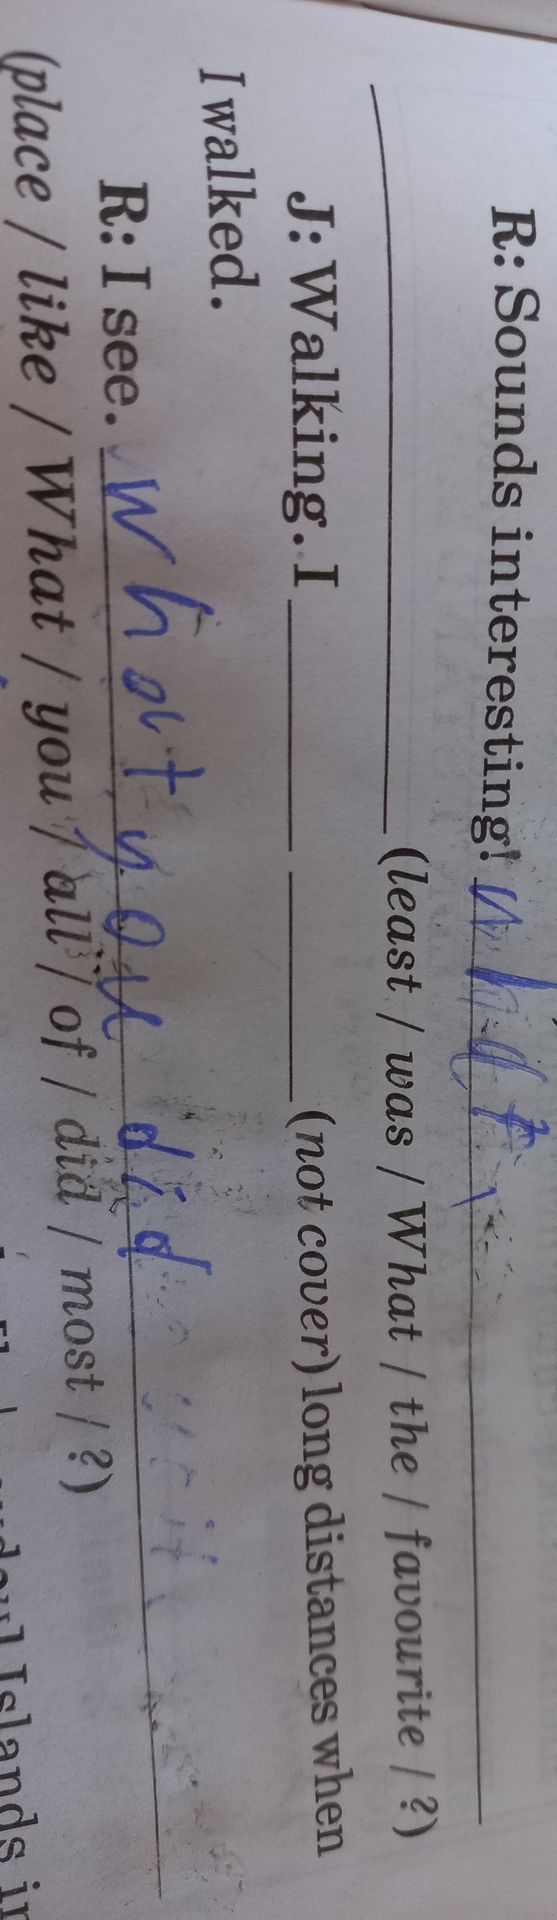 R: Sounds interesting! what
(least / was / What / the / favourite / ?)
J: Walking. I (not cover) long distances when
I walked.
R: I see. what you did
(place / like / What / you / all / of / did / most / ?)
Islands in